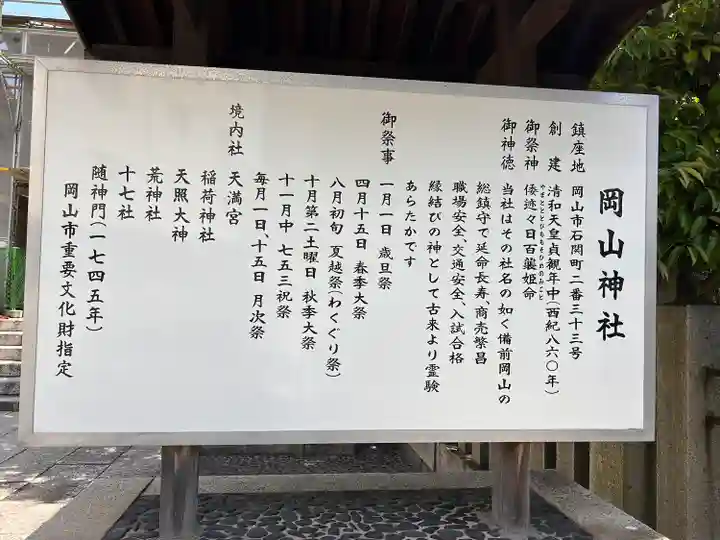 岡山神社
鎮座地 岡山市石関町二番三十三号
創建 清和天皇貞観年中(西紀八六〇年)
御祭神 倭迹々日百襲姫命
やまとととびももそひめのみこと
御神徳 当社はその社名の如く備前岡山の
総鎮守で延命長寿、商売繁昌
職場安全、交通安全、入試合格
縁結びの神として古来より霊験
あらたかです
御祭事 一月一日 歳旦祭
四月十五日 春季大祭
八月初旬 夏越祭(わくぐり祭)
十月第二土曜日 秋季大祭
十一月中 七五三祝祭
毎月一日、十五日 月次祭
境内社 天満宮
稲荷神社
天照大神
荒神社
十七社
随神門(一七四五年)
岡山市重要文化財指定